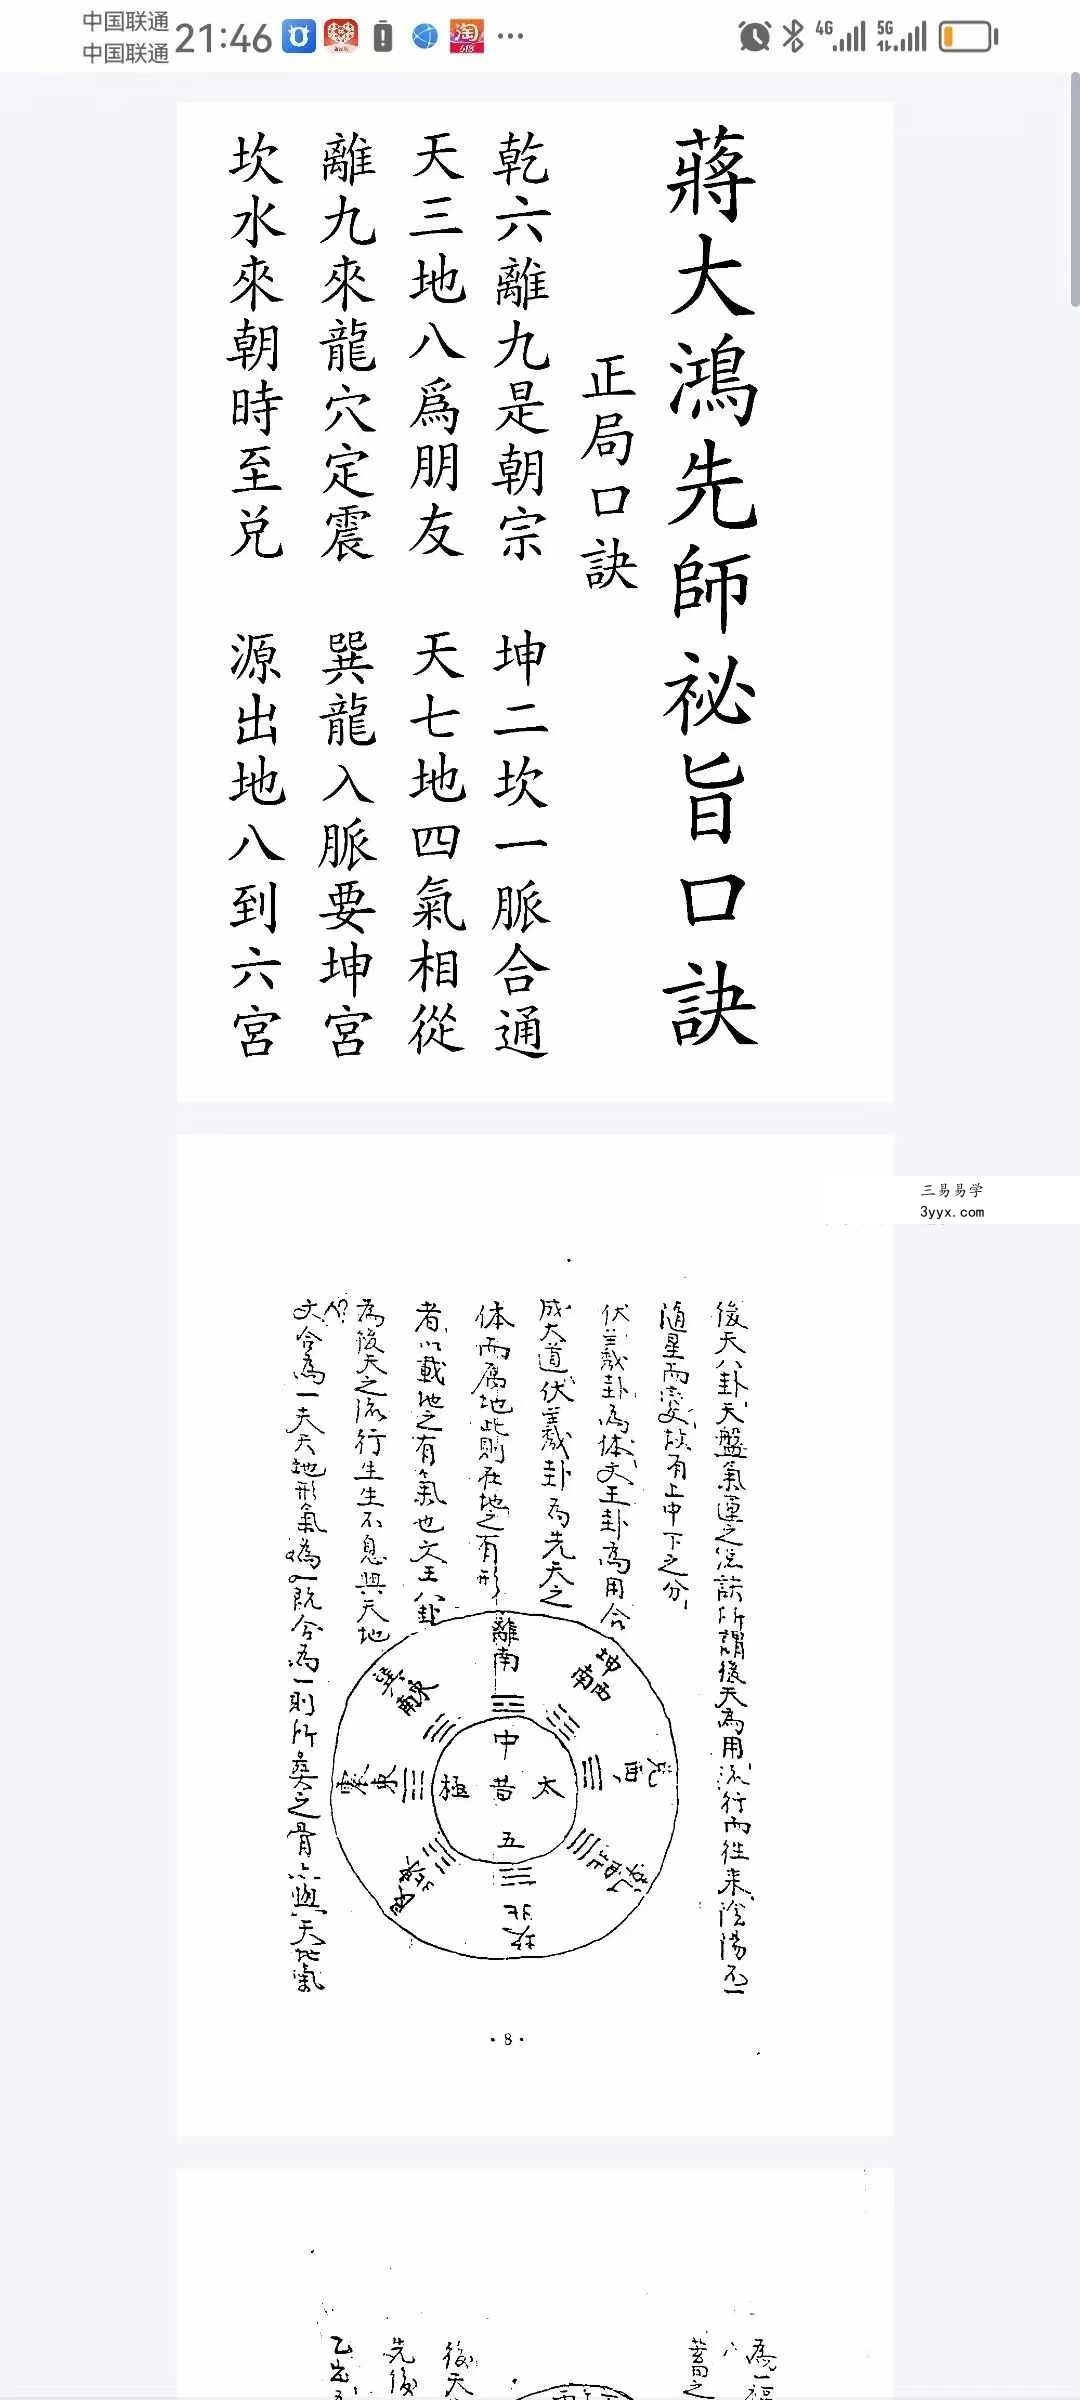 中国联通
中国联通
21:46
618
4G
5G
蔣大鴻先師祕旨口訣
正局口訣
乾六離九是朝宗 坤二坎一脈合通
天三地八爲朋友 天七地四氣相從
離九來龍穴定震 巽龍入脈要坤宮
坎水來朝時至兌 源出地八到六宮
三易易学
3yyx.com
後天八卦天盤氣運之從訣所謂後天為用流行而往来陰陽不一
隨星而變故有上中下之分
伏羲卦為体文王卦為用合
成大道伏羲卦為先天之
体而屬地此則在地之有形
者以載地之有氣也文王八卦
為後天之流行生生不息與天地
文合為一夫天地形氣為一既合為一則所奠之骨亦與天地氣
離南
坤西南
兌西
坎北
震東
巽東南
中
太昔極
五
·8·
為一福
蓄之
後天
先後